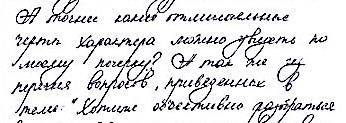 А точнее какие отличительные
черты характера можно увидеть по
моему почерку? А так же из
перечня вопросов, приведенных в
теме: "Хотите объективно разобраться